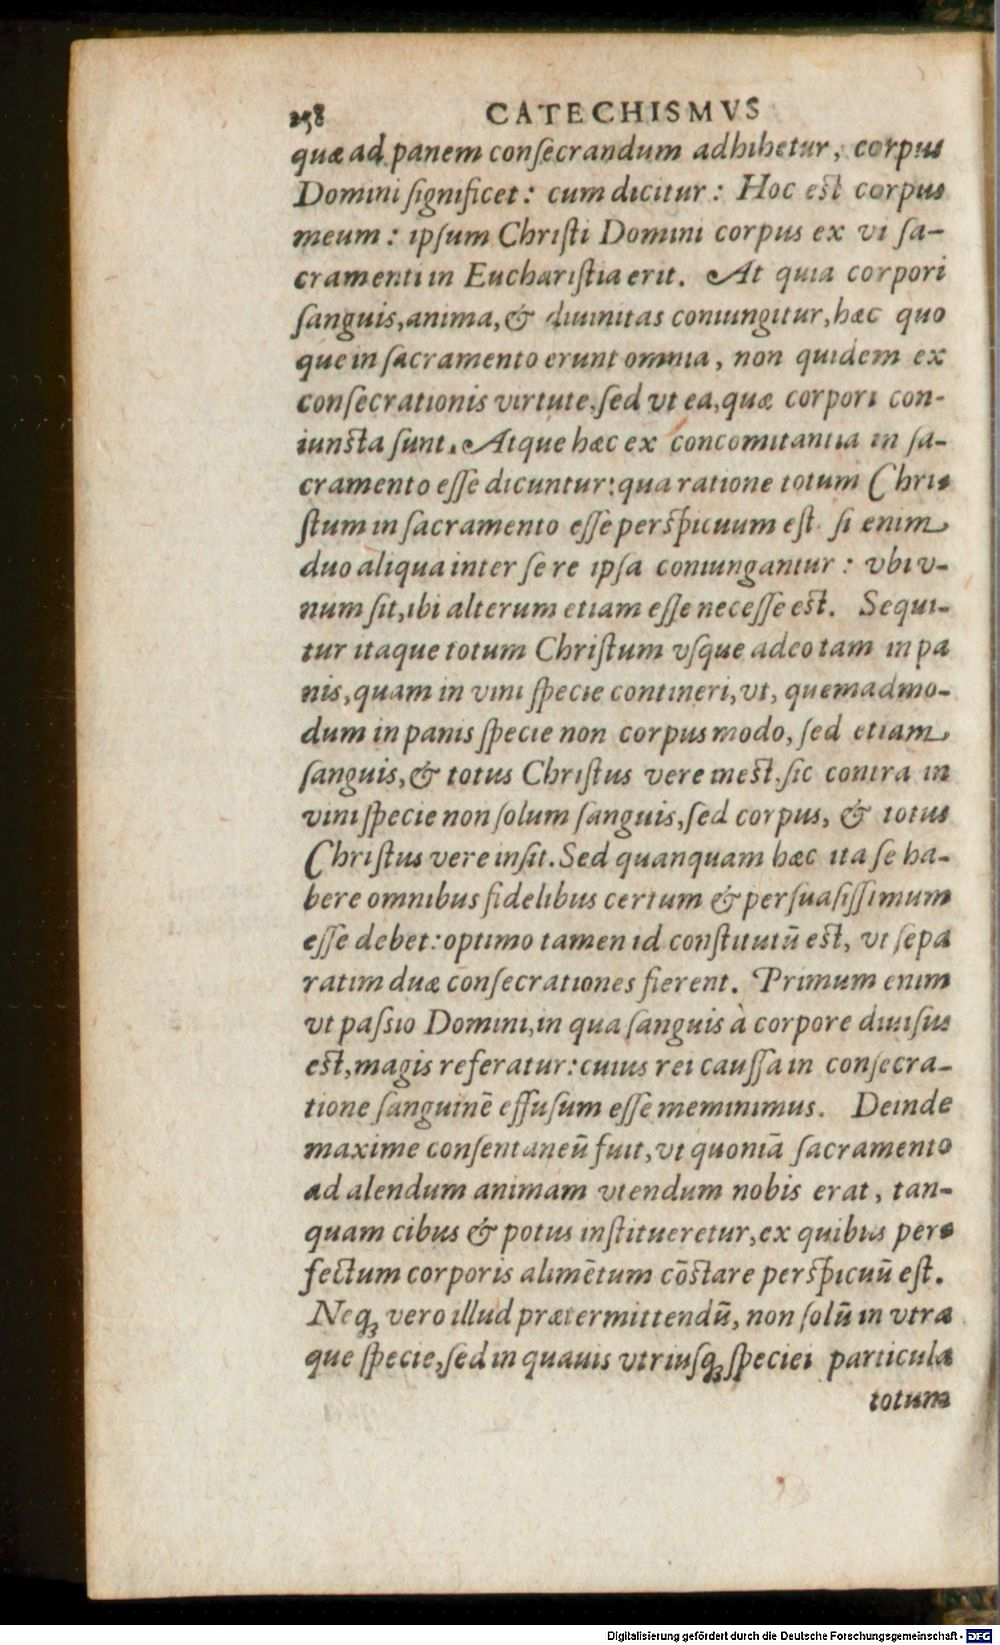 258 CATECHISMVS
quæ ad panem conſecrandum adhibetur, corpus
Domini ſignificet: cum dicitur: Hoc eſt corpus
meum: ipſum Chriſti Domini corpus ex vi ſa-
cramenti in Euchariſtia erit. At quia corpori
ſanguis, anima, & diuinitas coniungitur, hæc quo
que in ſacramento erunt omnia, non quidem ex
conſecrationis virtute, ſed vt ea, quæ corpori con-
iuncta ſunt. Atque hæc ex concomitantia in ſa-
cramento eſſe dicuntur: qua ratione totum Chri-
ſtum in ſacramento eſſe perſpicuum eſt. ſi enim
duo aliqua inter ſe re ipſa coniungantur: vbi v-
num ſit, ibi alterum etiam eſſe neceſſe eſt. Sequi-
tur itaque totum Chriſtum vſque adeo tam in pa
nis, quam in vini ſpecie contineri, vt, quemadmo-
dum in panis ſpecie non corpus modo, ſed etiam
ſanguis, & totus Chriſtus vere ineſt, ſic contra in
vini ſpecie non ſolum ſanguis, ſed corpus, & totus
Chriſtus vere inſit. Sed quanquam hæc ita ſe ha-
bere omnibus fidelibus certum & perſuaſiſſimum
eſſe debet: optimo tamen id conſtitutū eſt, vt ſepa
ratim duæ conſecrationes fierent. Primum enim
vt paſsio Domini, in qua ſanguis à corpore diuiſus
eſt, magis referatur: cuius rei cauſſa in conſecra-
tione ſanguinē effuſum eſſe meminimus. Deinde
maxime conſentaneū fuit, vt quoniā ſacramento
ad alendum animam vtendum nobis erat, tan-
quam cibus & potus inſtitueretur, ex quibus per-
fectum corporis alimētum cōſtare perſpicuū eſt.
Neqꝫ vero illud prætermittendū, non ſolū in vtra
que ſpecie, ſed in quauis vtriuſqꝫ ſpeciei particula
totum
Digitalisierung gefördert durch die Deutsche Forschungsgemeinschaft - DFG